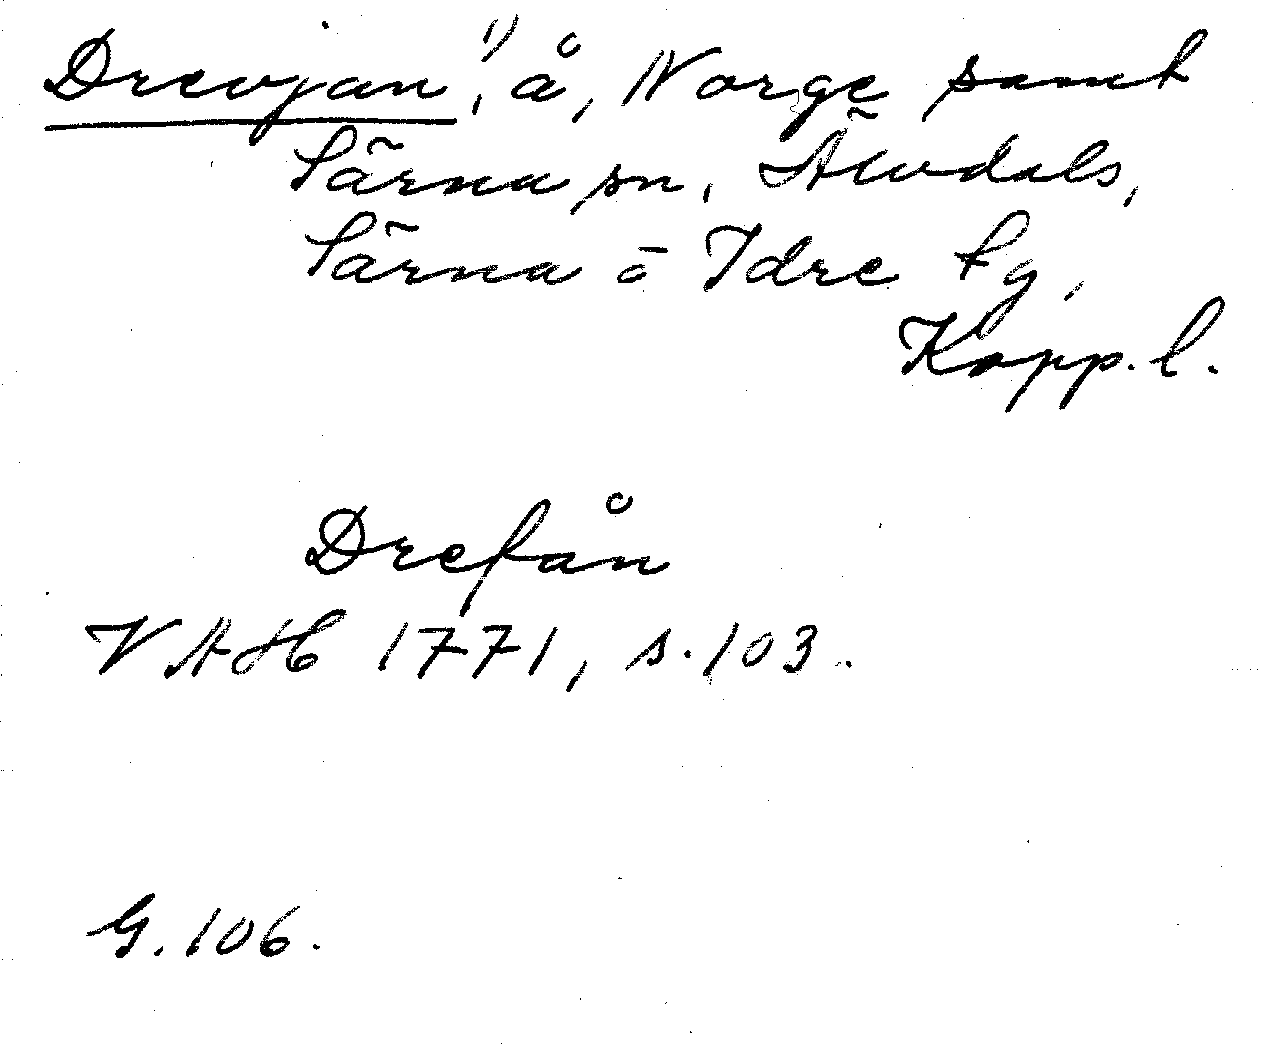 Drevjan,¹⁾ å, Norge samt
Särna sn, Älvdals,
Särna o Idre tg,
Kopp. l.
Drefån
VAH 1771, s. 103.
G. 106.